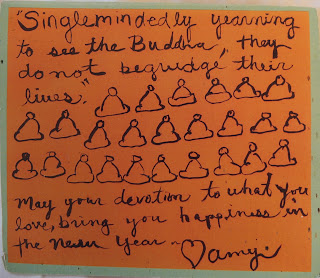 "Singlemindedly yearning
to see the Buddha, they
do not begrudge their
lives."
May your devotion to what you
love, bring you happiness in
the New Year ~ ♡ amy